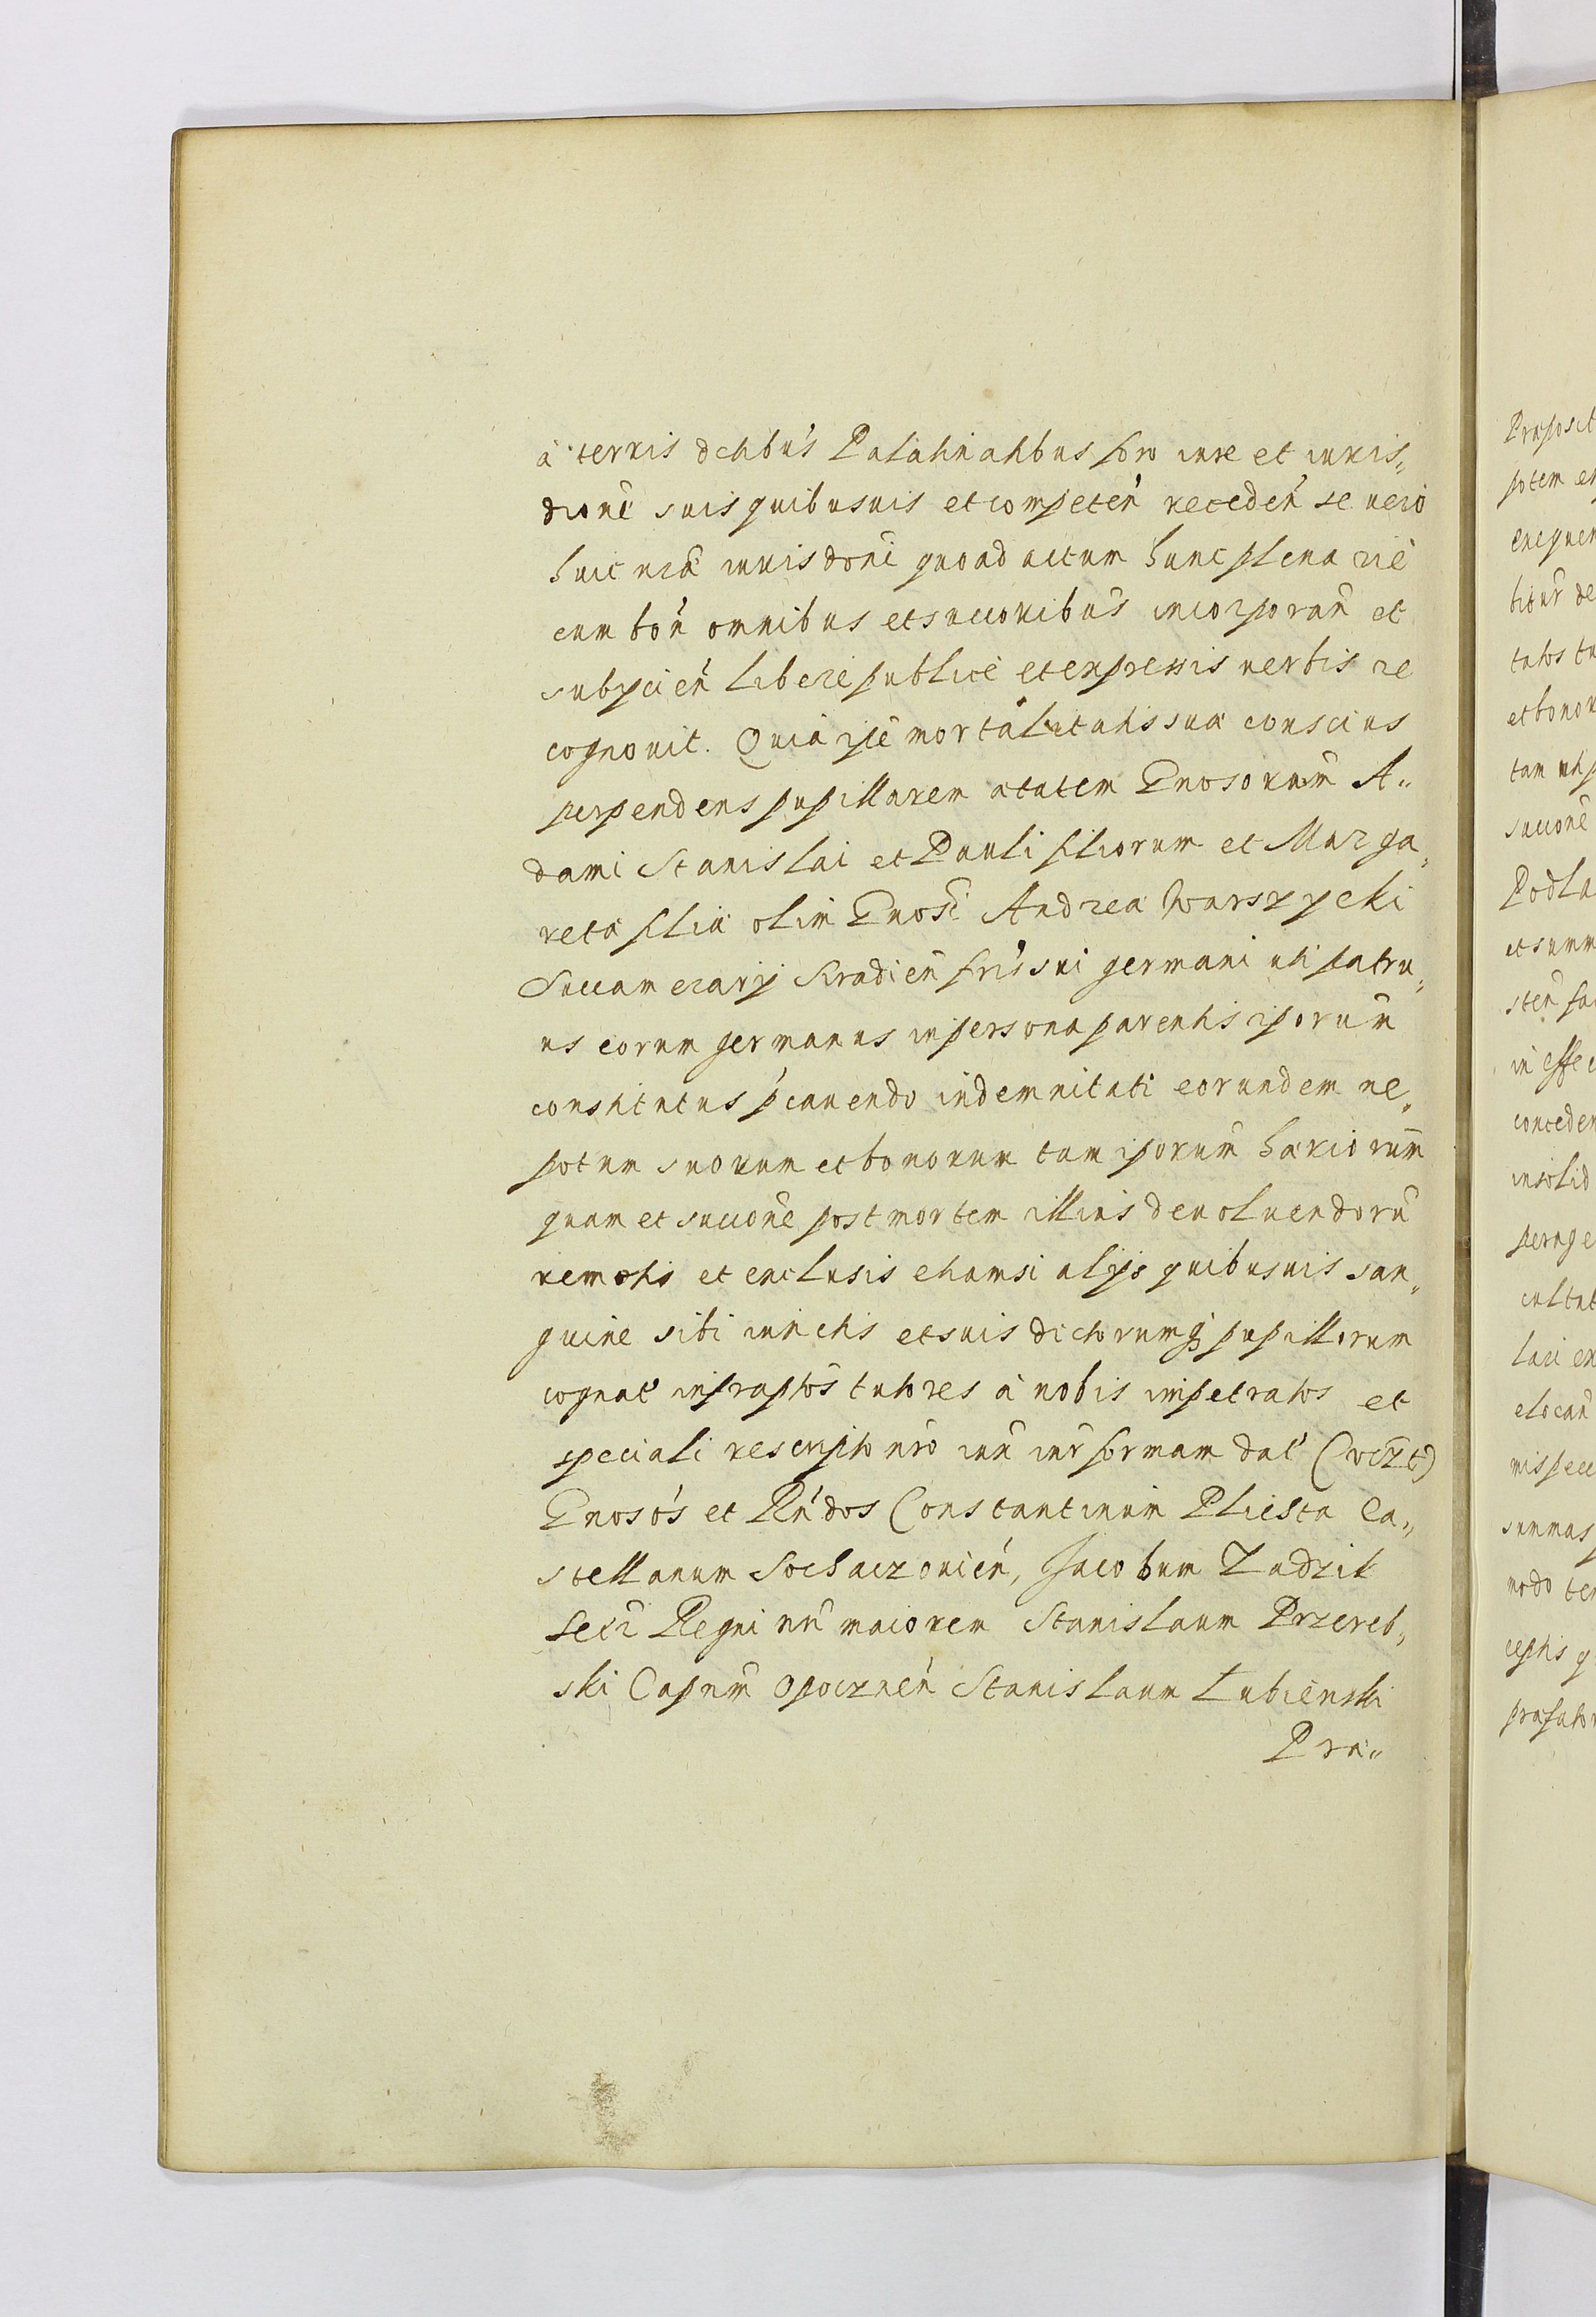 à terris dictibus Palatinatibus foro iure et iuris„
dione suis quibusuis et competeń receden se vero
huic nrae iurisdoni quoad actum hunc plenariè
cum bon omnibus et succonibus incorporan et
subycien liberè publicè et expressis verbis re
cognouit. Quia ipse mortalitatis suae conscius
perpendens pupillarem aetatem Gnosorum A„
dami Stanislai et Pauli filiorum et Marga„
retae filiae olim Gnosi Andreae Warszycki
Succamerarij Siradien fris sui germani uti patru„
us eorum germanus in persona parentis ipsorum
constitutus pcauendo indemnitati eorundem ne„
potum suorum et bonorum tam ipsorum haeriorum
quam et succone post mortem illius deuoluendorū
remotis et exclusis etiamsi alijs quibusuis san„
guine sibi iunctis et suis dictorumq pupillorum
cognat infraptos tutores à nobis impetratos et
speciali rescripto nro iux iur formam dat (vdzt)
Gnosos et Rndos Constantinum Plichta Ca„
stellanum Sochaczouien, Jacobum Zadzik
Secr Regni nrī maiorem Stanislaum Przereb„
ski Capnm Opocznen Stanislaum Lubienski
Prae„
Praeposit
potem e
exequen
titur de
tatos tu
et bonor
tam uti p
succone
Podla
et summ
sten fa
in effec
conceden
insolid
perage
cultat
lari ex
elocan
nis pecc
summas
modo te
ceptis q
praefator